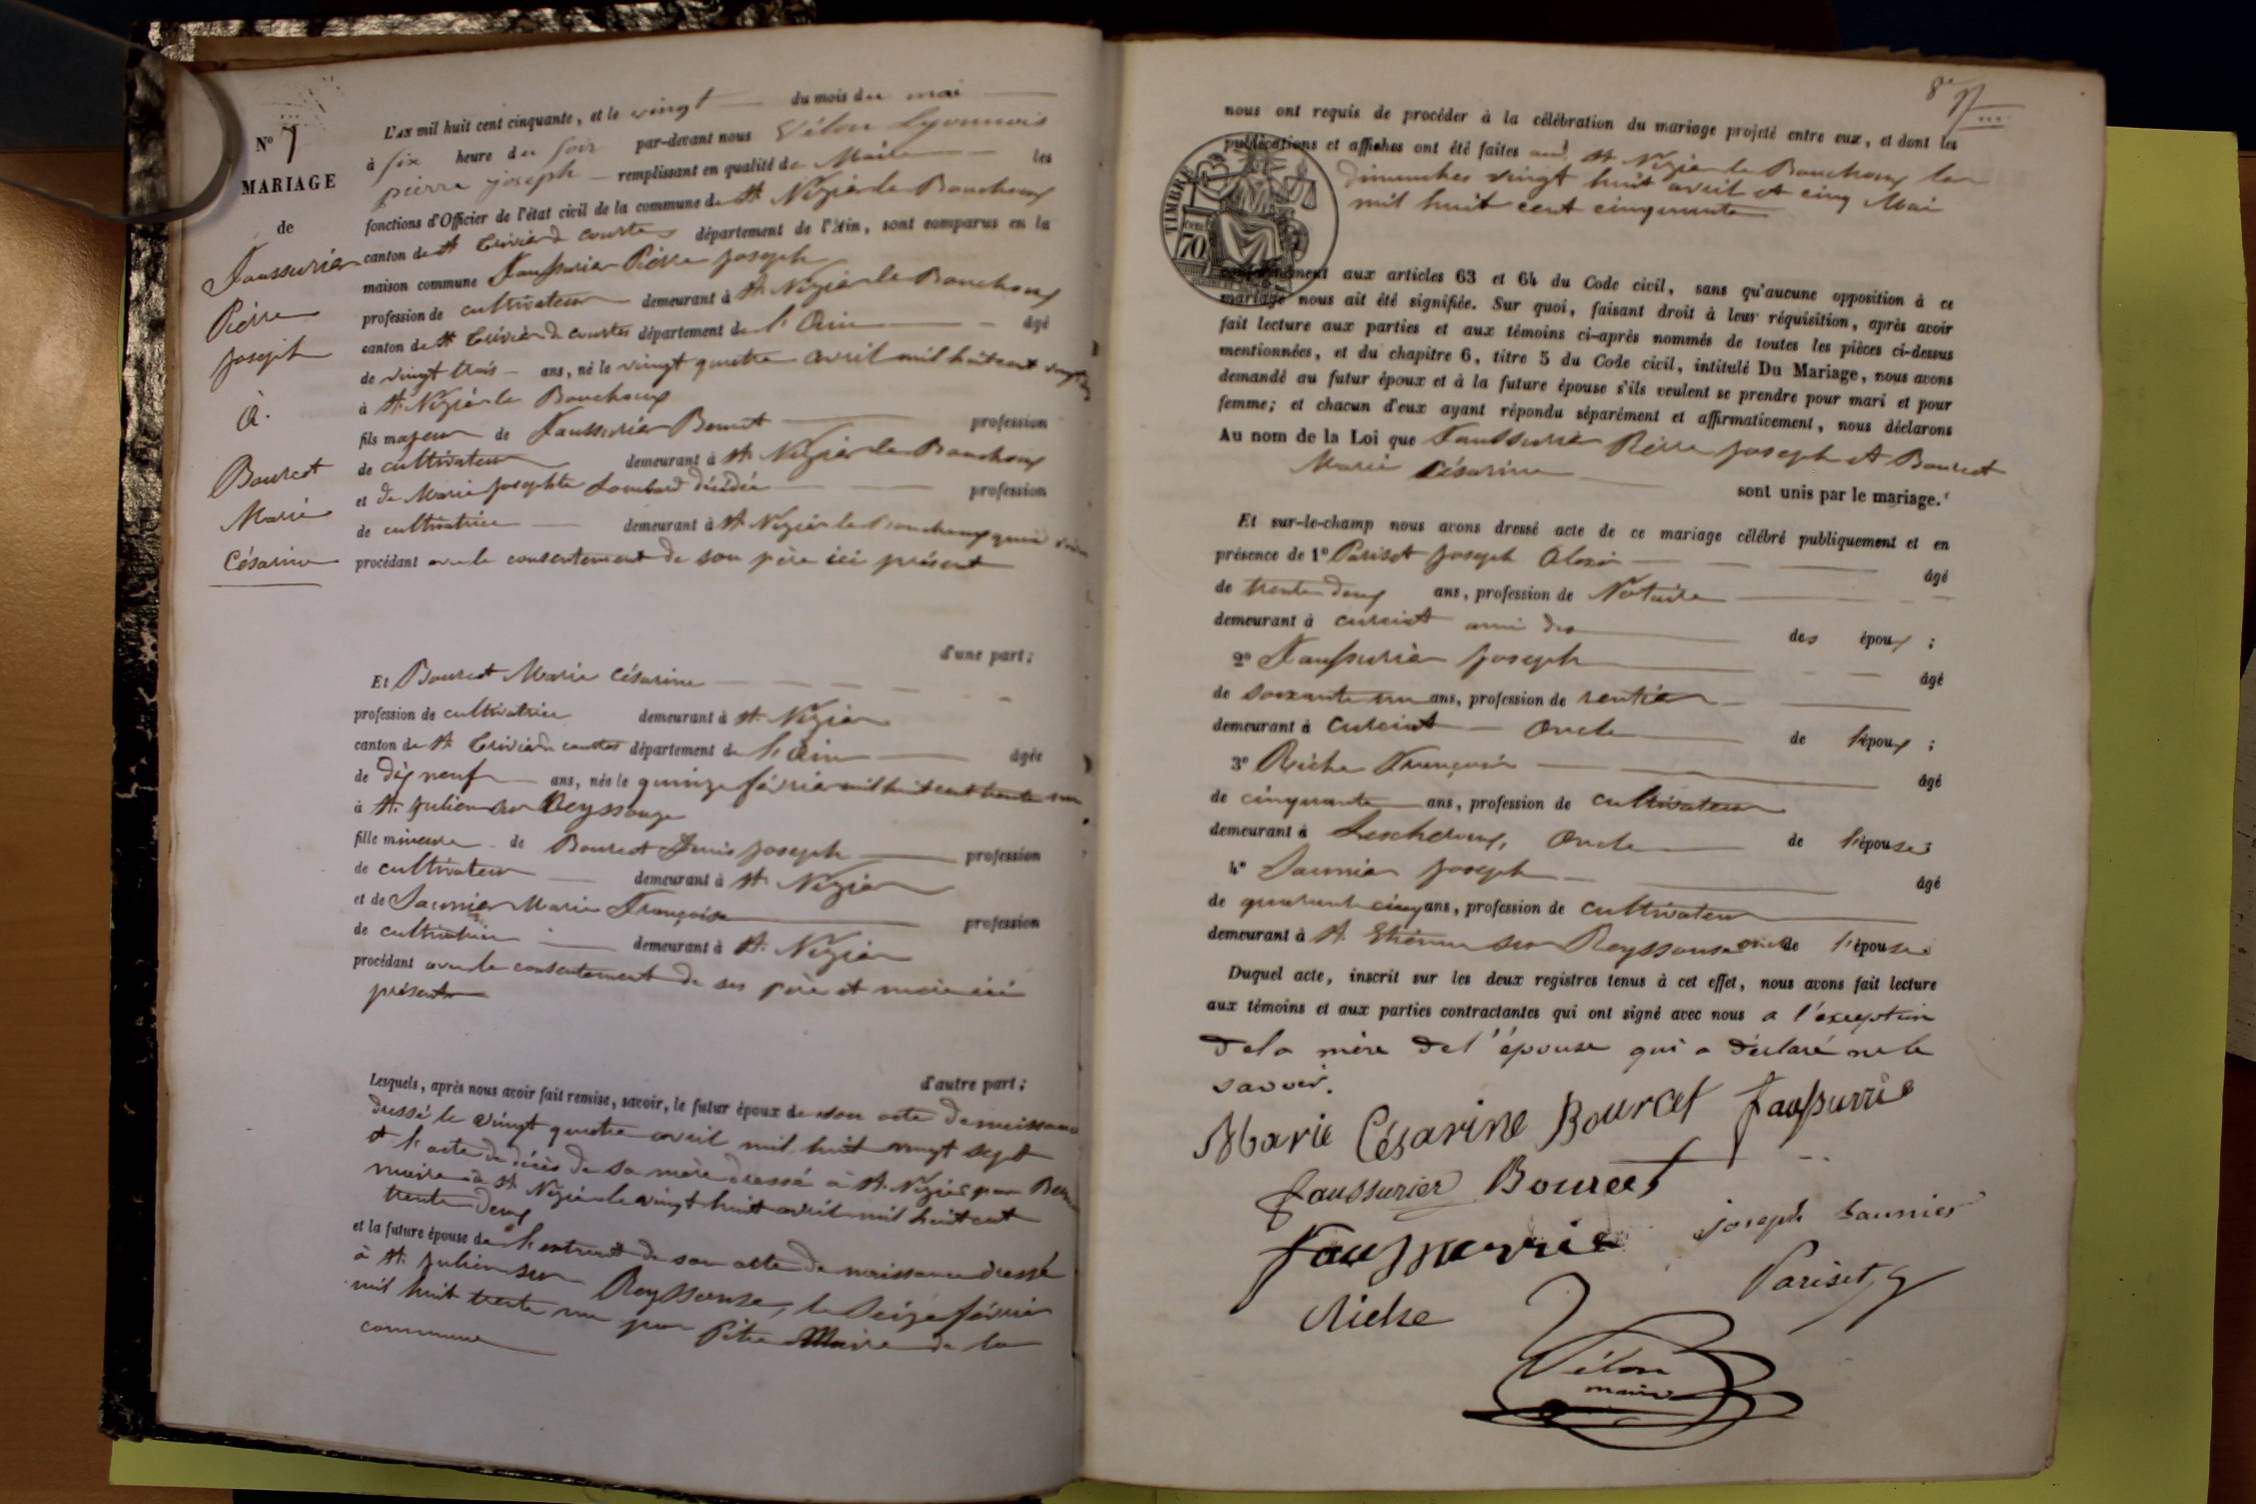 N° 7
MARIAGE
de
Faussurier
Pierre
Joseph
à
Bourcet
Marie
Césarine
L'AN mil huit cent cinquante, et le vingt du mois de mai
à six heure du soir par-devant nous Vélon Lyonnois
pierre joseph remplissant en qualité de Maire les
fonctions d'Officier de l'état civil de la commune de St Nizier le Bouchoux
canton de St Trivier de courtes département de l'Ain, sont comparus en la
maison commune Faussurier Pierre Joseph
profession de cultivateur demeurant à St Nizier le Bouchoux
canton de St Trivier de courtes département de l'Ain âgé
de vingt trois ans, né le vingt quatre avril mil huit cent vingt
à St Nizier le Bouchoux
fils majeur de Faussurier Benoit profession
de cultivateur demeurant à St Nizier le Bouchoux
et de Marie Josephte Lombard décédée profession
de cultivatrice demeurant à St Nizier le Bouchoux
procédant avec le consentement de son père ici présent
d'une part;
Et Bourcet Marie Césarine
profession de cultivatrice demeurant à St Nizier
canton de St Trivier de courtes département de l'ain âgée
de dix neuf ans, née le quinze février mil huit cent trente un
à St Julien sur Reyssouze
fille mineure de Bourcet Denis Joseph profession
de cultivateur demeurant à St Nizier
et de Saunier Marie Françoise profession
de cultivatrice demeurant à St Nizier
procédant avec le consentement de ses père et mère ici
présents
d'autre part;
Lesquels, après nous avoir fait remise, savoir, le futur époux de son acte de naissance
dressé le vingt quatre avril mil huit vingt sept
et l'acte de décès de sa mère dressé à St Nizier par
maire à St Nizier le vingt huit avril mil huit cent
trente deux
et la future épouse de l'extrait de son acte de naissance dressé
à St Julien sur Reyssouze, le Seize février
mil huit trente un par Pitre Maire de la
commune
nous ont requis de procéder à la célébration du mariage projeté entre eux, et dont les
publications et affiches ont été faites St Nizier le Bouchoux les
dimanches vingt huit avril et cinq Mai
mil huit cent cinquante
TIMBRE
70
conformément aux articles 63 et 64 du Code civil, sans qu'aucune opposition à ce
mariage nous ait été signifiée. Sur quoi, faisant droit à leur réquisition, après avoir
fait lecture aux parties et aux témoins ci-après nommés de toutes les pièces ci-dessus
mentionnées, et du chapitre 6, titre 5 du Code civil, intitulé Du Mariage, nous avons
demandé au futur époux et à la future épouse s'ils veulent se prendre pour mari et pour
femme; et chacun d'eux ayant répondu séparément et affirmativement, nous déclarons
Au nom de la Loi que Faussurier Pierre Joseph et Bourcet
Marie Césarine
sont unis par le mariage.
Et sur-le-champ nous avons dressé acte de ce mariage célébré publiquement et en
présence de 1° Pariset Joseph Alexis âgé
de trente deux ans, profession de Notaire
demeurant à curciat ami des des époux;
2° Faussurier Joseph âgé
de soixante un ans, profession de rentier
demeurant à Curciat Oncle de l'époux;
3° Riche François âgé
de cinquante ans, profession de cultivateur
demeurant à Lescheroux, Oncle de l'épouse;
4° Saunier Joseph âgé
de quarante cinq ans, profession de cultivateur
demeurant à St Etienne sur Reyssouze oncle de l'épouse
Duquel acte, inscrit sur les deux registres tenus à cet effet, nous avons fait lecture
aux témoins et aux parties contractantes qui ont signé avec nous a l'exception
de la mère de l'épouse qui a déclaré ne le
savoir.
Marie Césarine Bourcet Faussurrié
Faussurier Bourcet
Faussurrié joseph Saunier
Riche Pariset
Vélon
maire